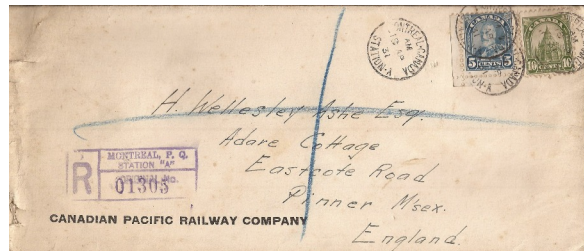 MONTREAL·CANADA
STATION·A
AM
31
CANADA
5 CENTS 5
CANADA
10 CENTS 10
H. Wellesley Ashe Esq.
Adare Cottage
Eastcote Road
Pinner M'sex.
England.
MONTREAL, P. Q.
STATION "A"
R
ORIGINAL No.
01305
CANADIAN PACIFIC RAILWAY COMPANY